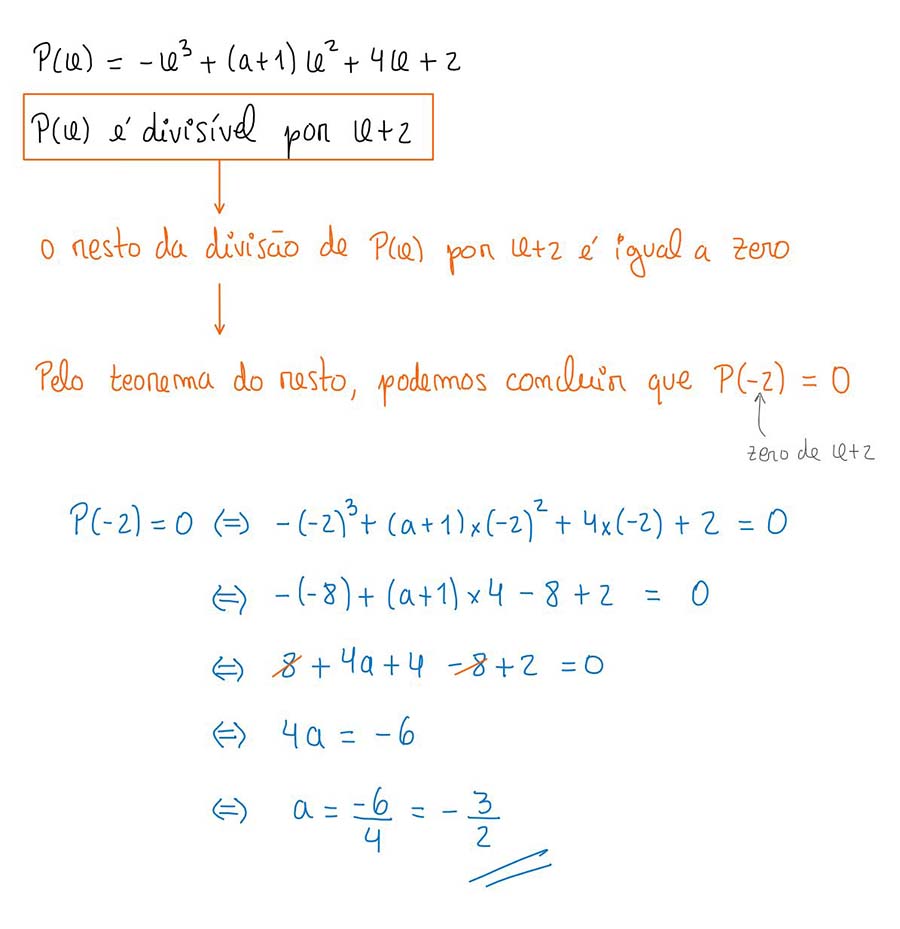 P(x) = -x³ + (a+1)x² + 4x + 2
P(x) é divisível por x+2
o resto da divisão de P(x) por x+2 é igual a zero
Pelo teorema do resto, podemos concluir que P(-2) = 0
zero de x+2
P(-2) = 0 ⇔ -(-2)³ + (a+1)×(-2)² + 4×(-2) + 2 = 0
⇔ -(-8) + (a+1)×4 - 8 + 2 = 0
⇔ 8 + 4a + 4 - 8 + 2 = 0
⇔ 4a = -6
⇔ a = -6/4 = -3/2